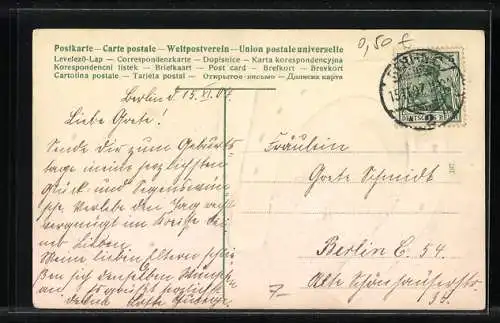 Postkarte — Carte postale — Weltpostverein — Union postale universelle
Levelező-Lap — Correspondenzkarte — Dopisnice — Karta korespondencyjna
Korespondenční listek — Briefkaart — Post card — Brefkort — Brevkort
Cartolina postale — Tarjeta postal — Открытое письмо — Дописна карта
0,50 €
Berlin d. 15. XI. 07.
Liebe Grete!
Sende Dir zum Geburts-
tage meine herzlichsten
Glück und Segenswün-
sche. Verlebe den Tag recht
vergnügt im Kreise dei-
ner Lieben.
Meine lieben Eltern schlie-
ßen sich denselben Wünschen
an. Es grüßt herzlich
deine
BERLIN
15.11.07
2
Fräulein
Grete Schmidt
Berlin C. 54
Alte Schönhauserstr.
7-